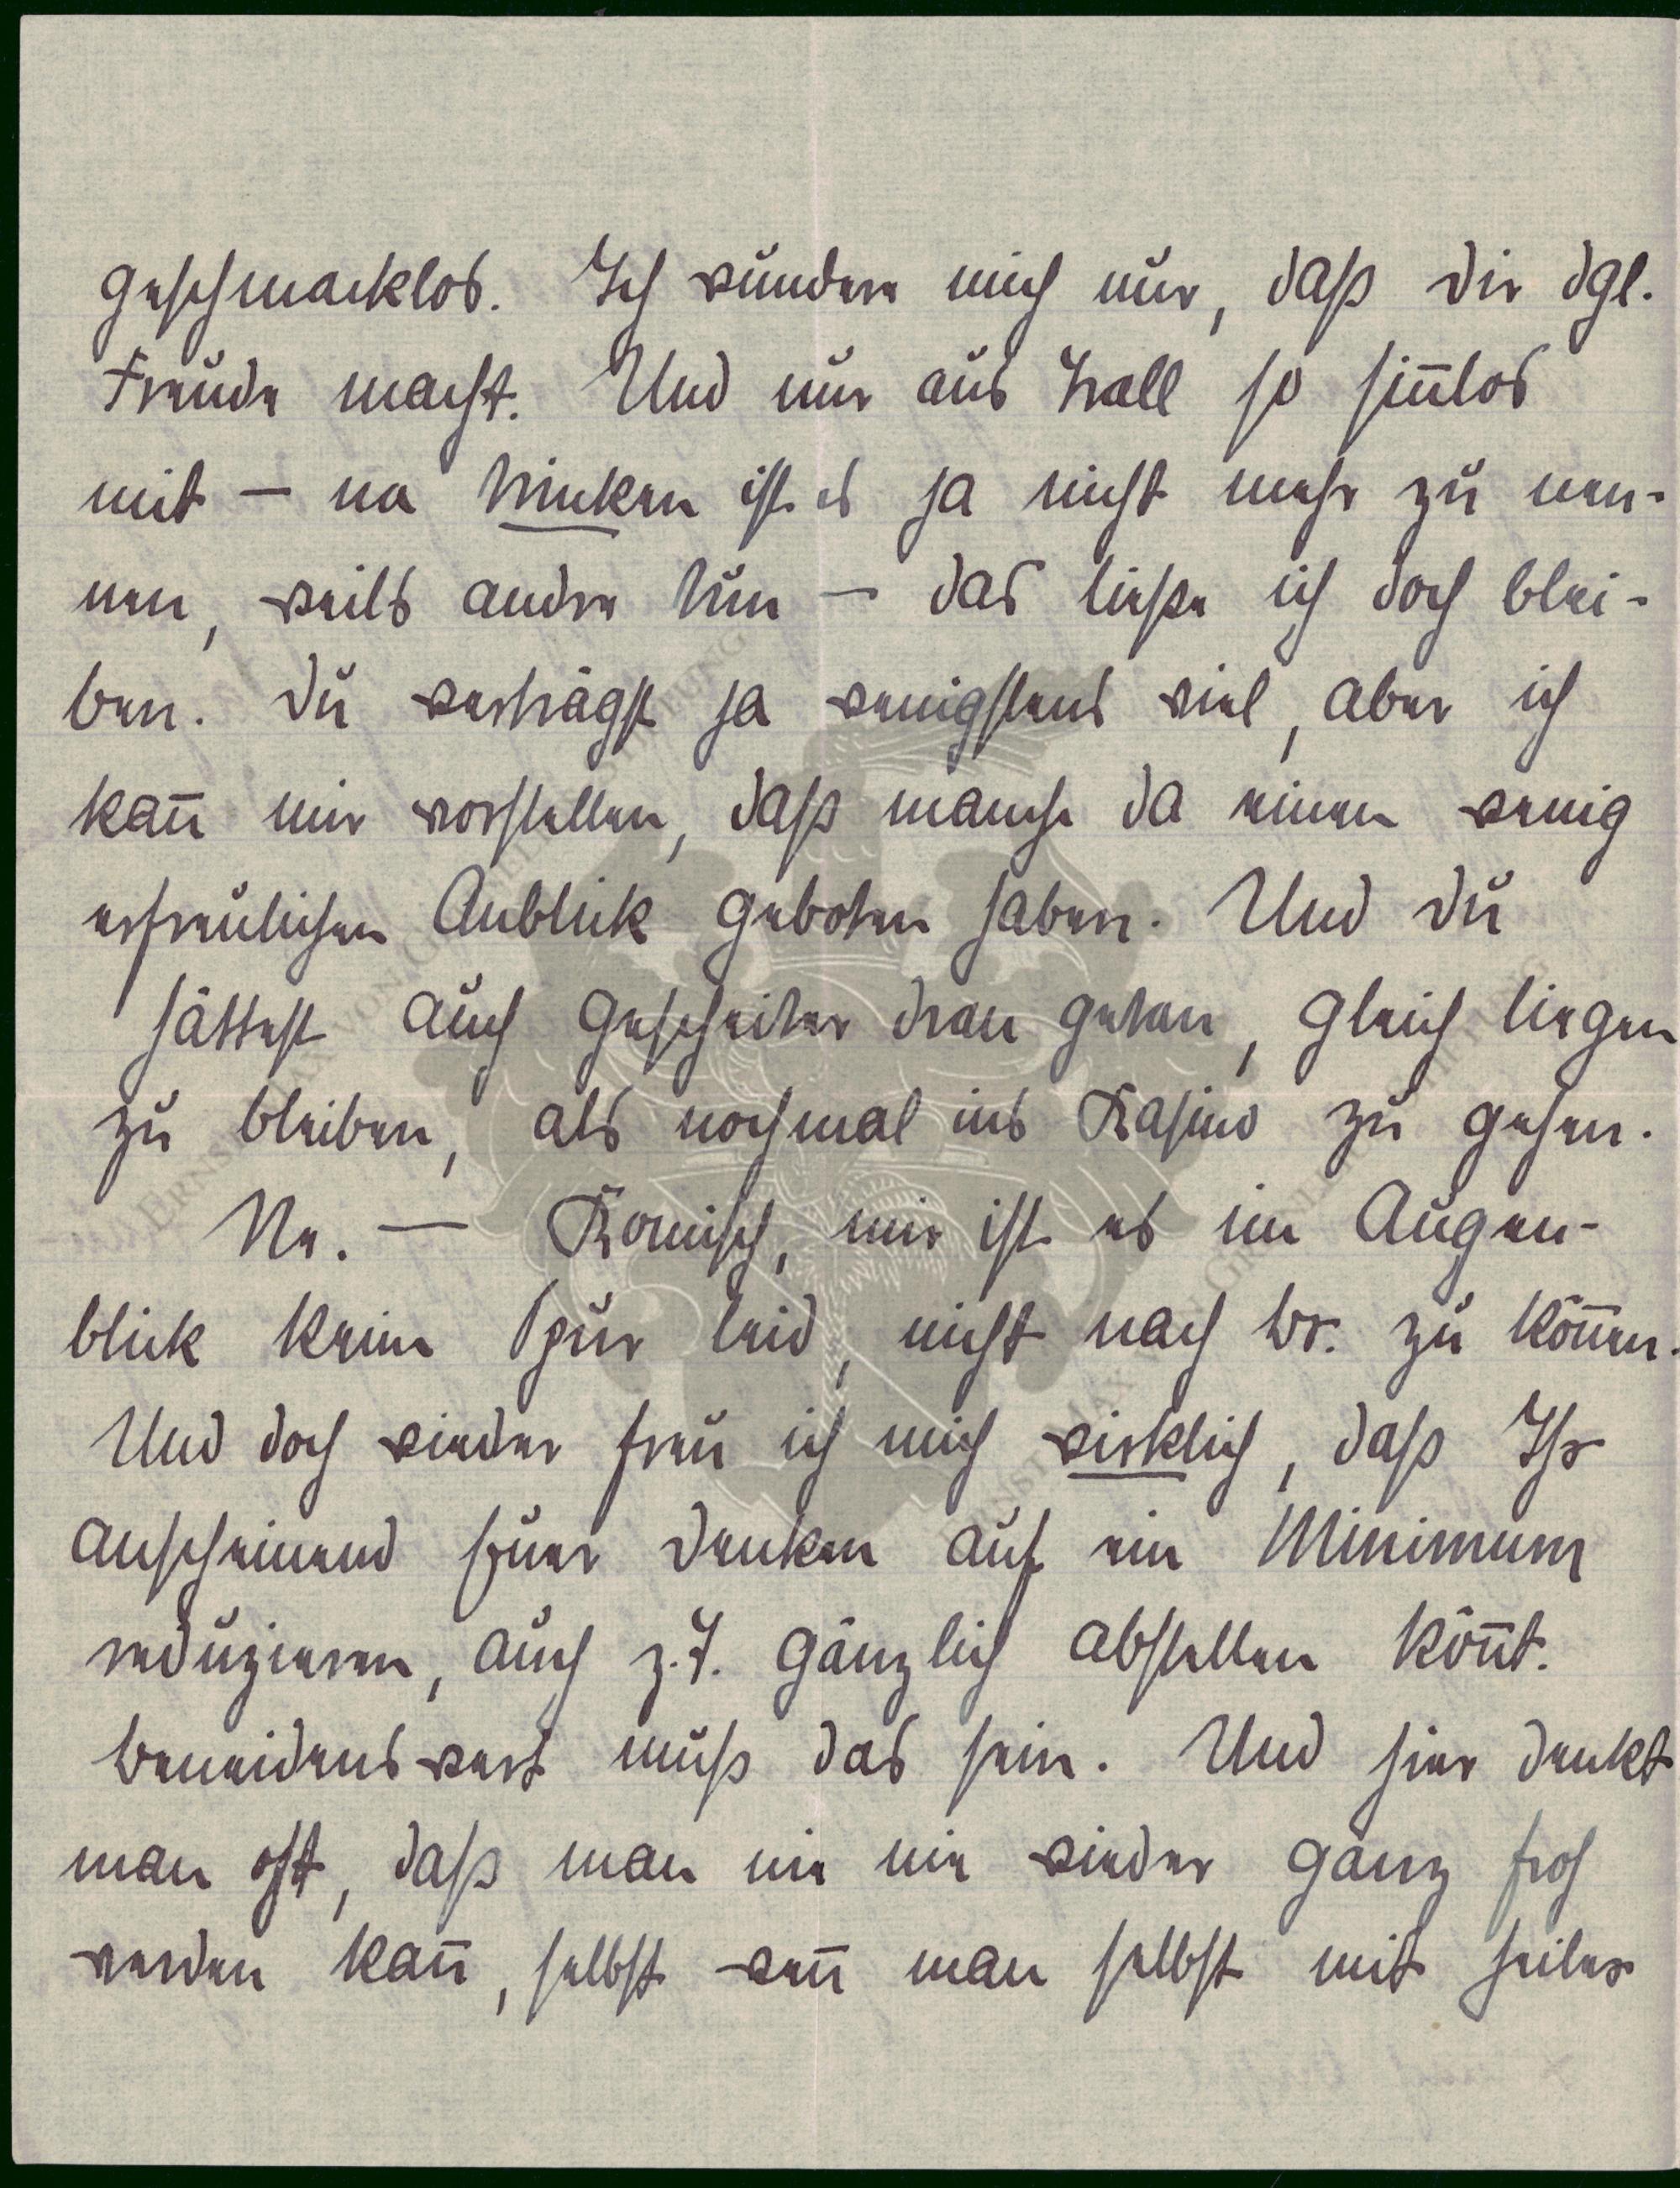 geschmacklos. Ich wundere mich nur, daß dir dgl.
Freude macht. Und nur aus Trall so sin̄los
mit – na trinken ist es ja nicht mehr zu nen-
nen, weils andre tun – das ließe ich doch blei-
ben. Du verträgst ja wenigstens viel, aber ich
kan̄ mir vorstellen, daß manche da einen wenig
erfreulichen Anblick geboten haben. Und du
hättest auch gescheiter dran getan, gleich liegen
zu bleiben, als nochmal ins Kasino zu gehen.
Ne. — Komisch, mir ist es im Augen-
blick keine Spur leid, nicht nach Br. zu kön̄en.
Und doch wieder freu ich mich wirklich, daß Ihr
anscheinend Euer Denken auf ein Minimum
reduzieren, auch z.T. gänzlich abstellen kön̄t.
Beneidenswert muß das sein. Und hier denkt
man oft, daß man nie nie wieder ganz froh
werden kan̄, selbst wen̄ man selbst mit heiler